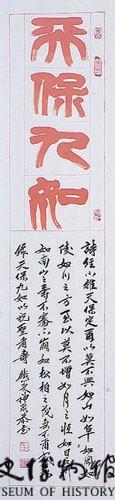 天保九如
詩經小雅天保定爾以莫不興如山如阜如岡如
陵如川之方至以莫不增如月之恆如日
如南山之壽不騫不崩如松柏之茂無不爾
天保九如以祝 者壽
史博物館
SEUM OF HISTORY